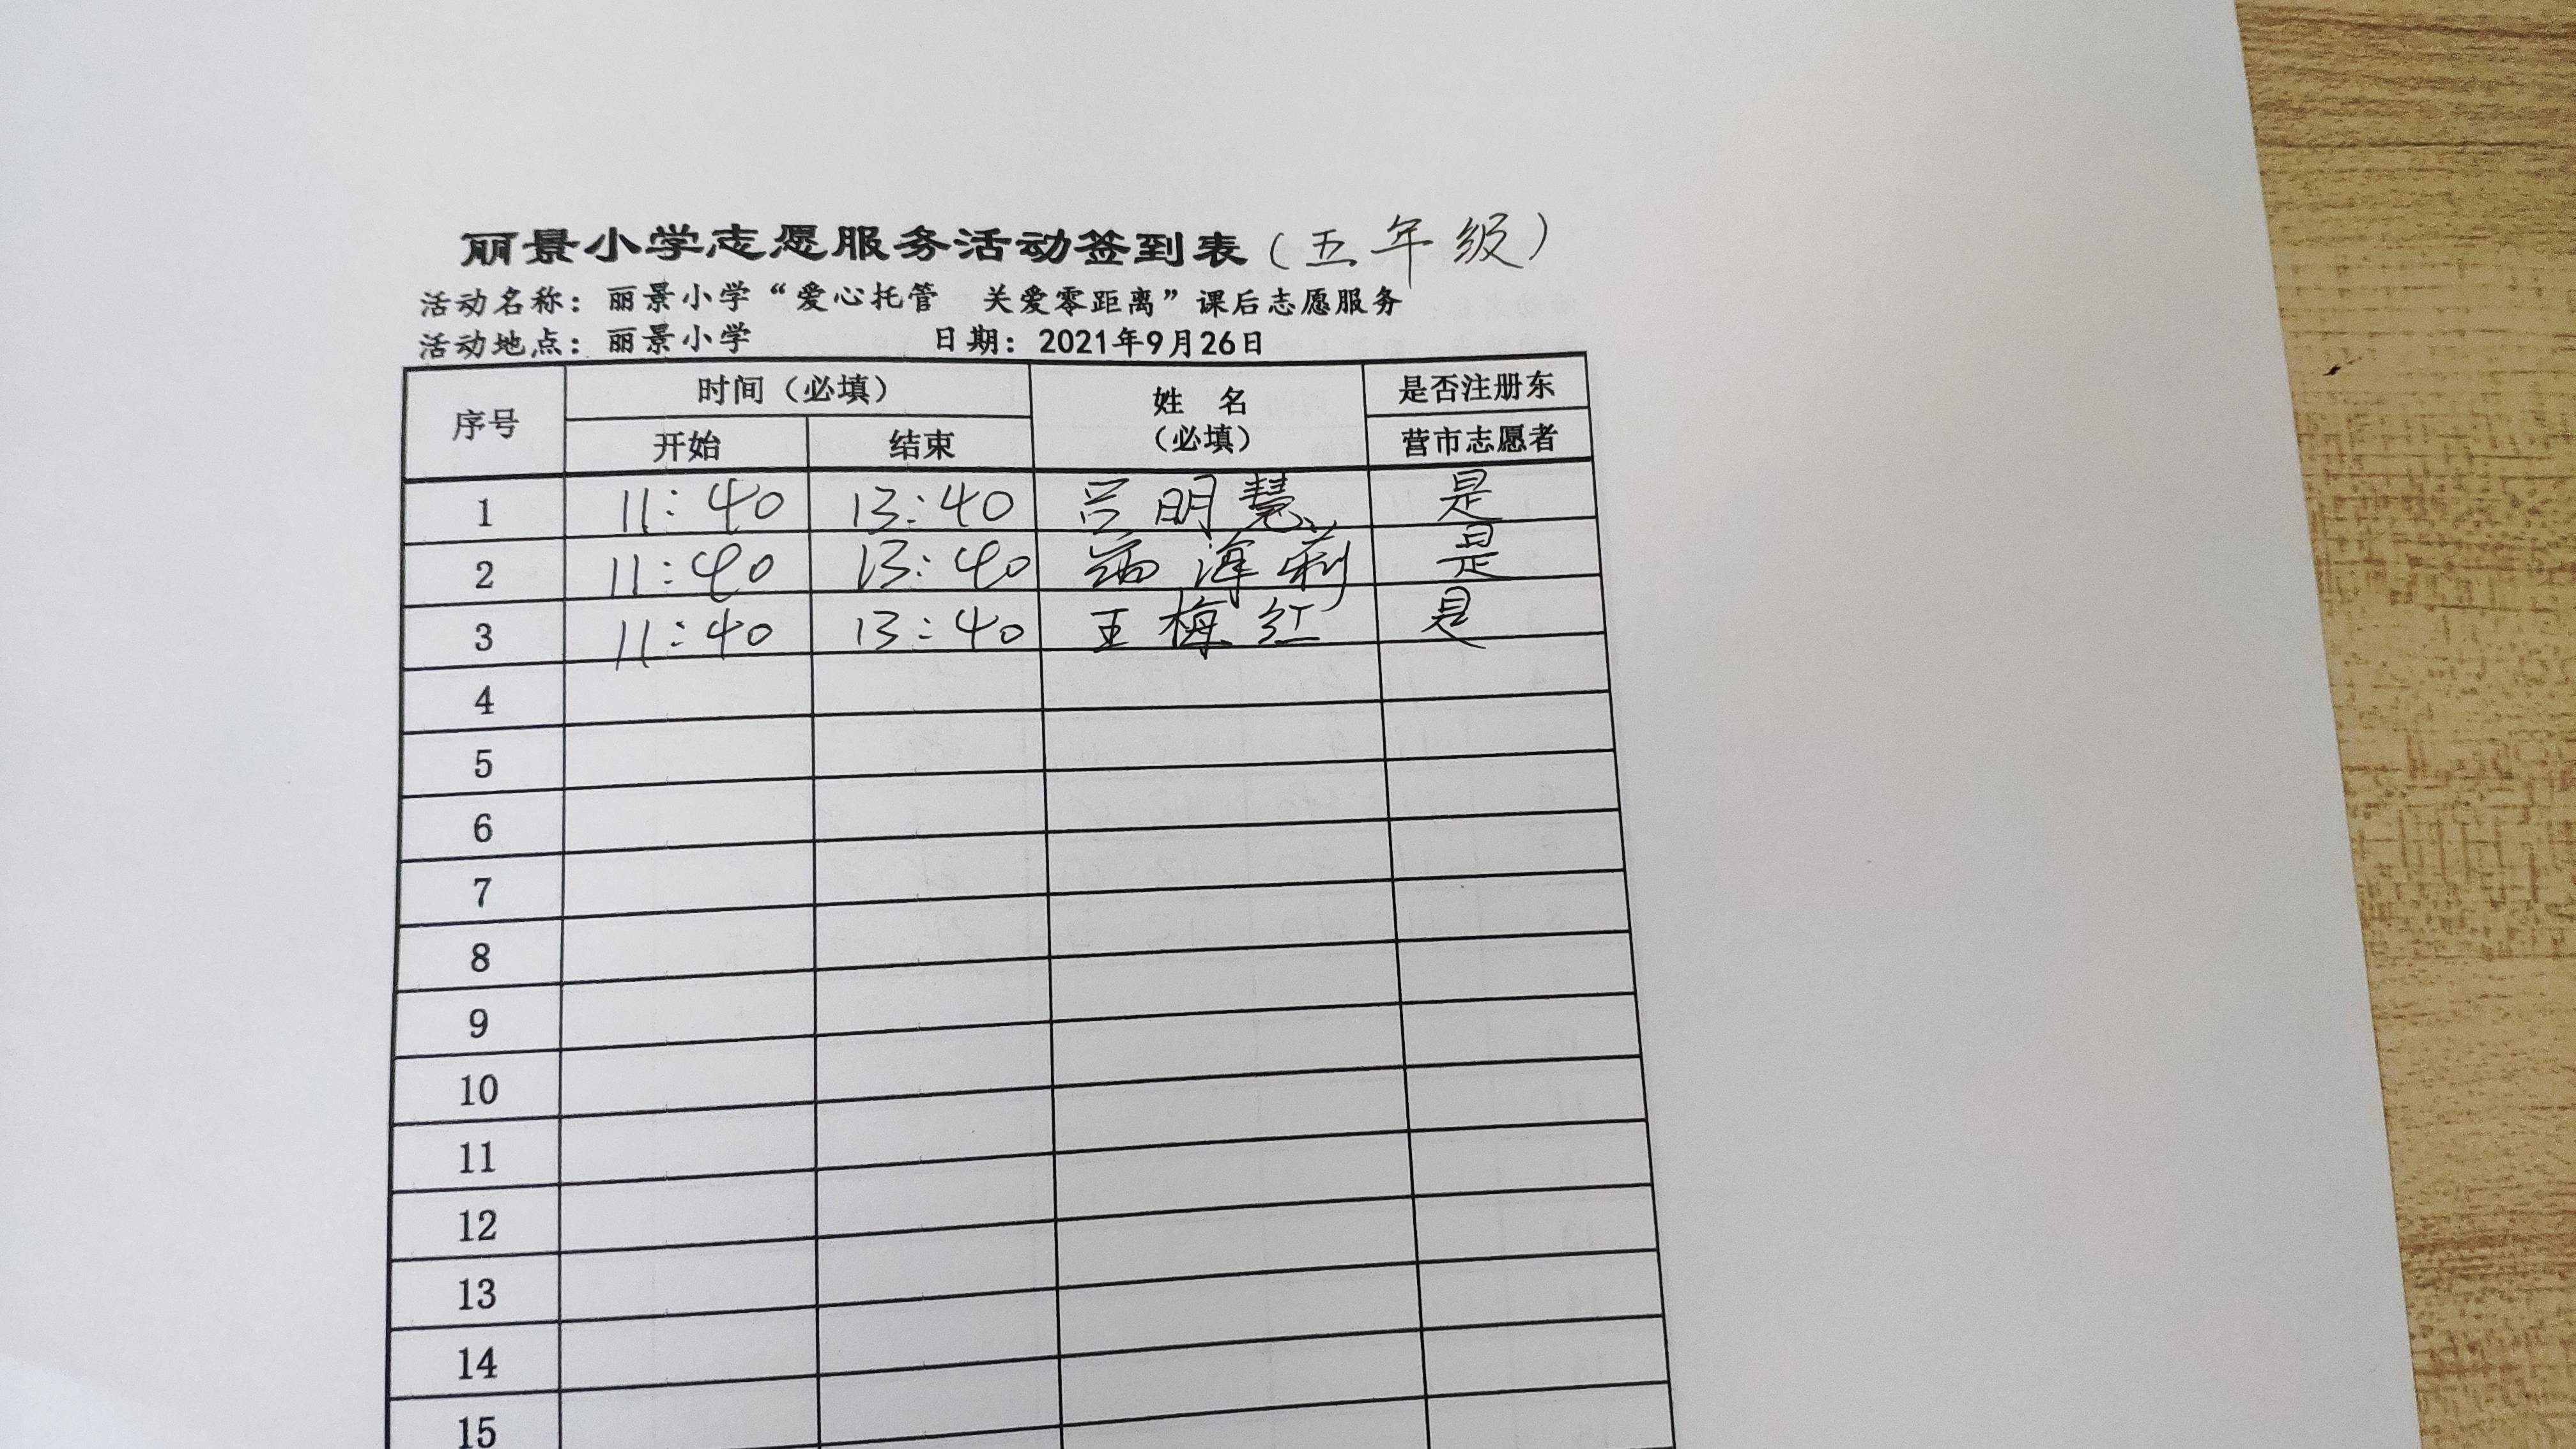 丽景小学志愿服务活动签到表（五年级）
活动名称：丽景小学“爱心托管 关爱零距离”课后志愿服务
活动地点：丽景小学 日期：2021年9月26日
序号 时间（必填） 姓 名 是否注册东
开始 结束 （必填） 营市志愿者
1 11:40 13:40 吕明慧 是
2 11:40 13:40 海莉 是
3 11:40 13:40 王梅红 是
4
5
6
7
8
9
10
11
12
13
14
15